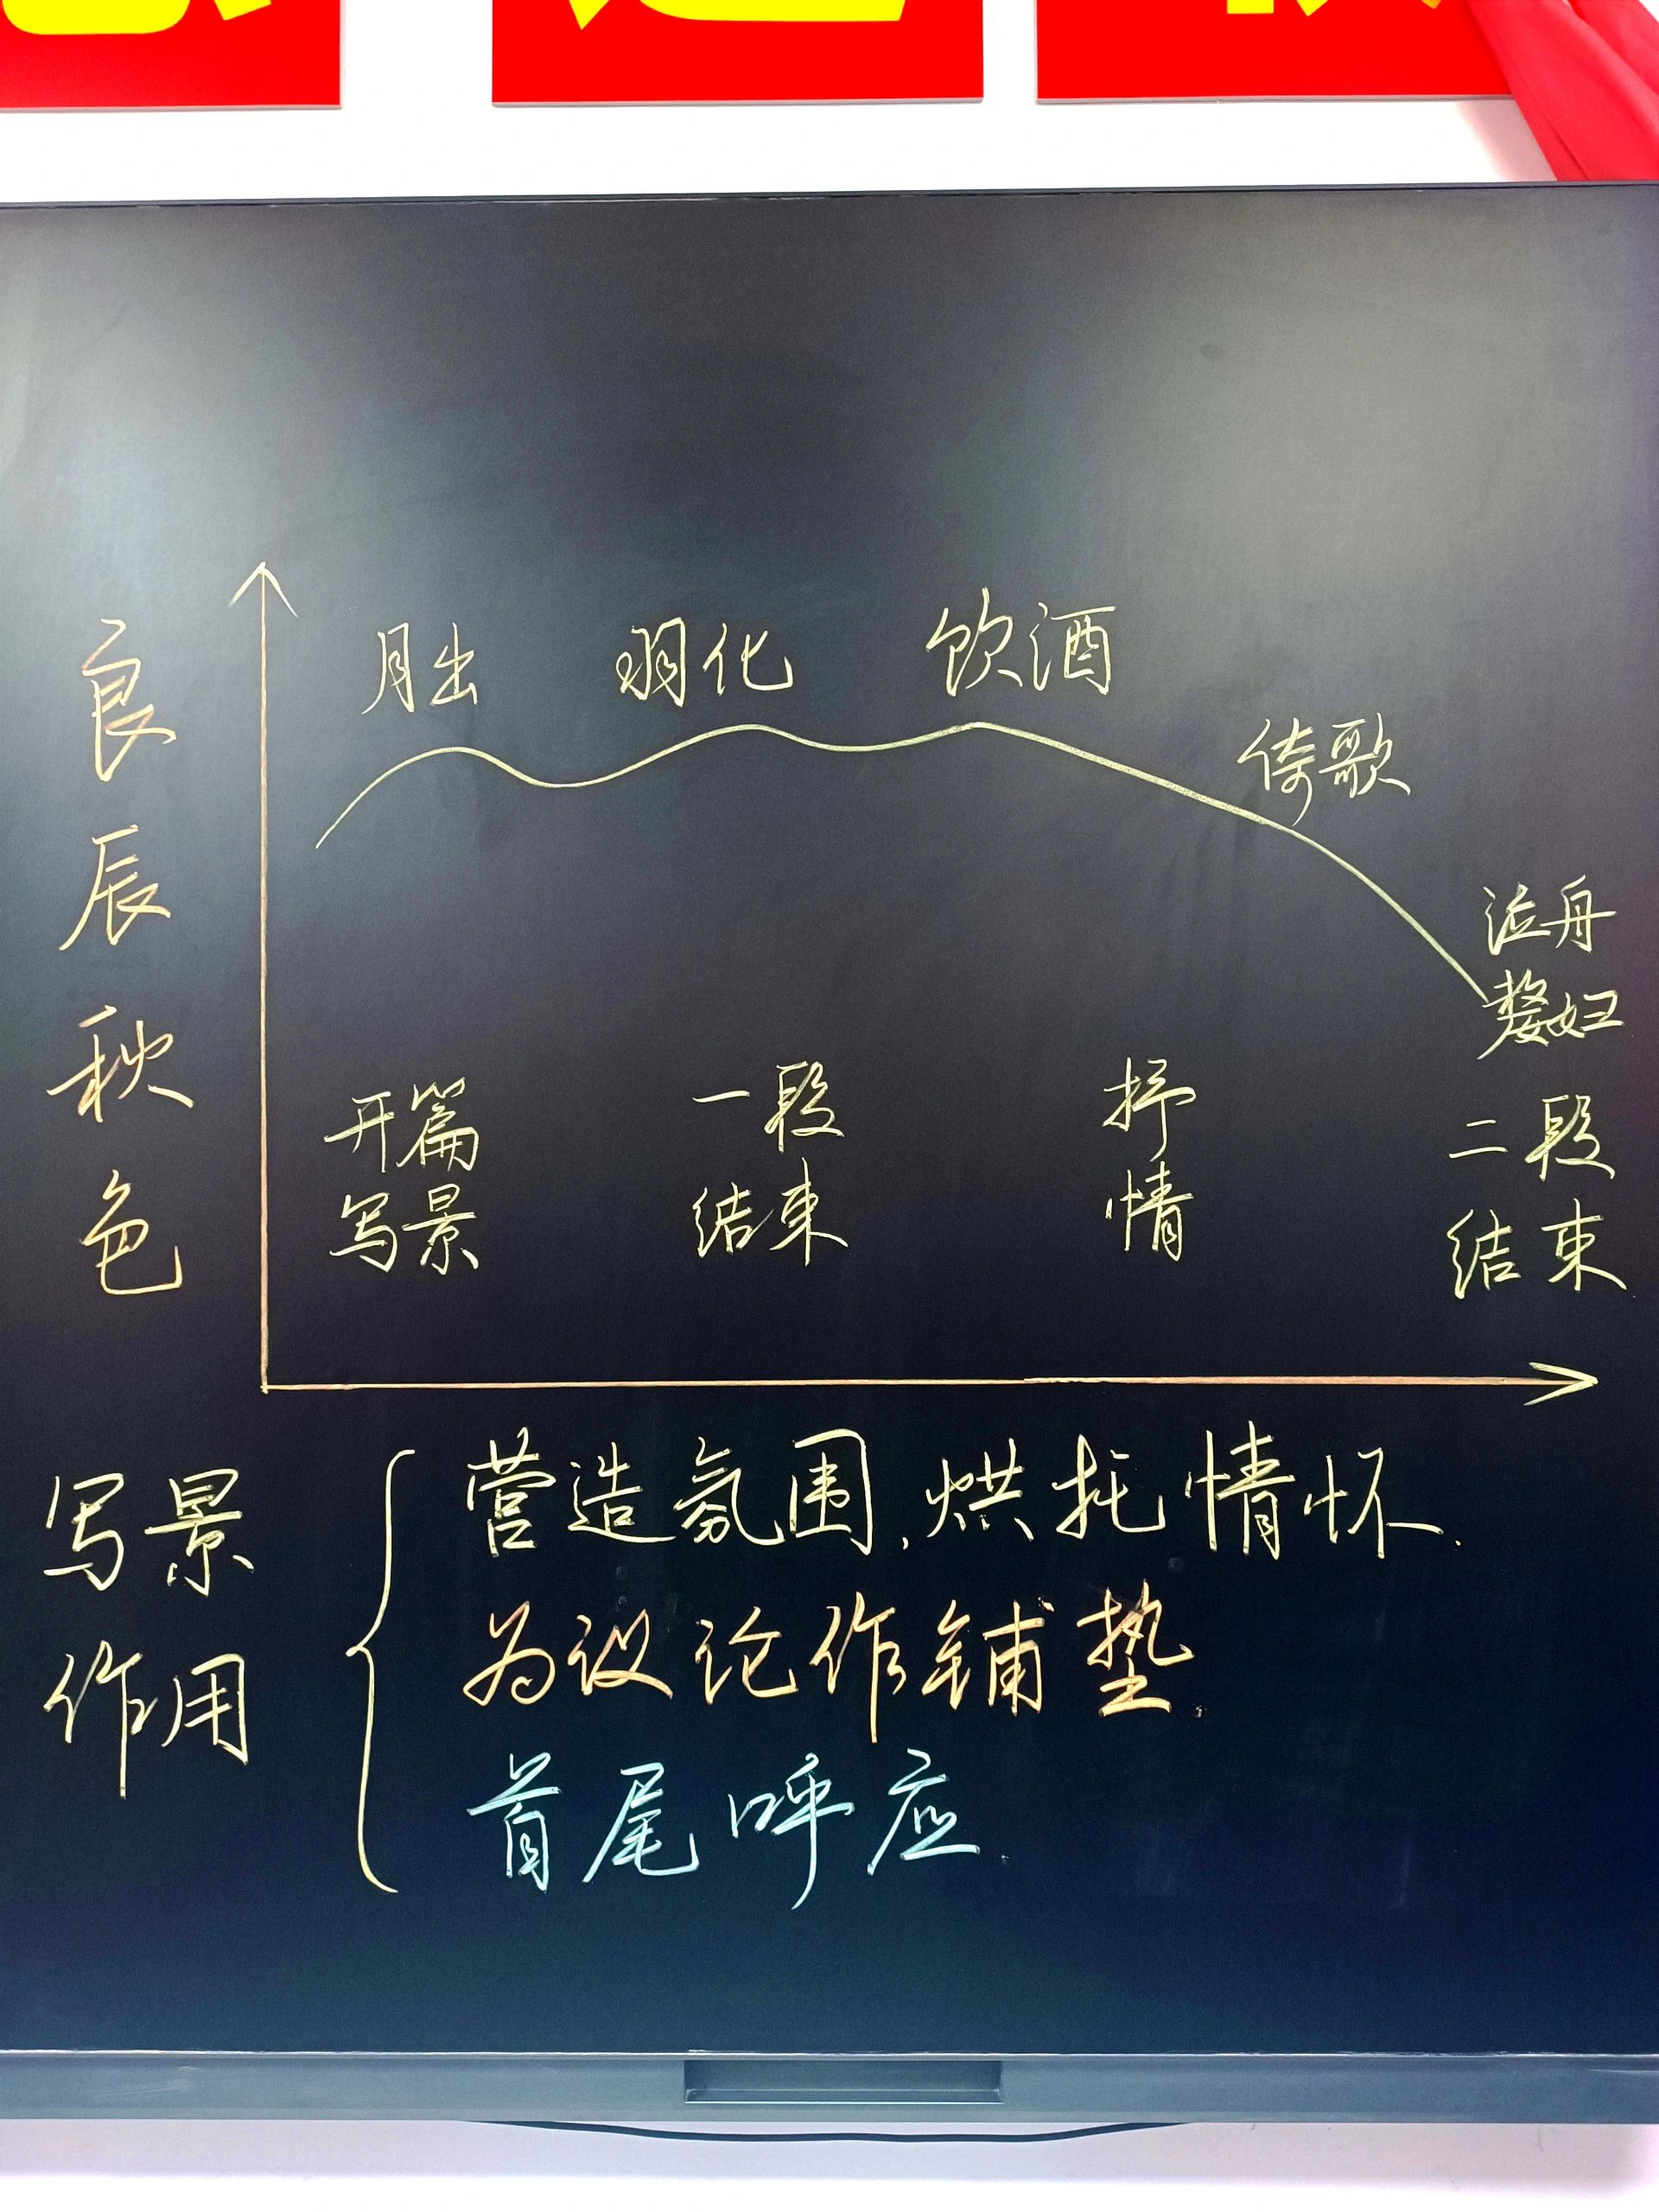 良辰秋色
月出 羽化 饮酒
倚歌
泣舟
嫠妇
开篇
写景
一段
结束
抒
情
二段
结束
写景
作用
营造氛围,烘托情怀.
为议论作铺垫.
首尾呼应.